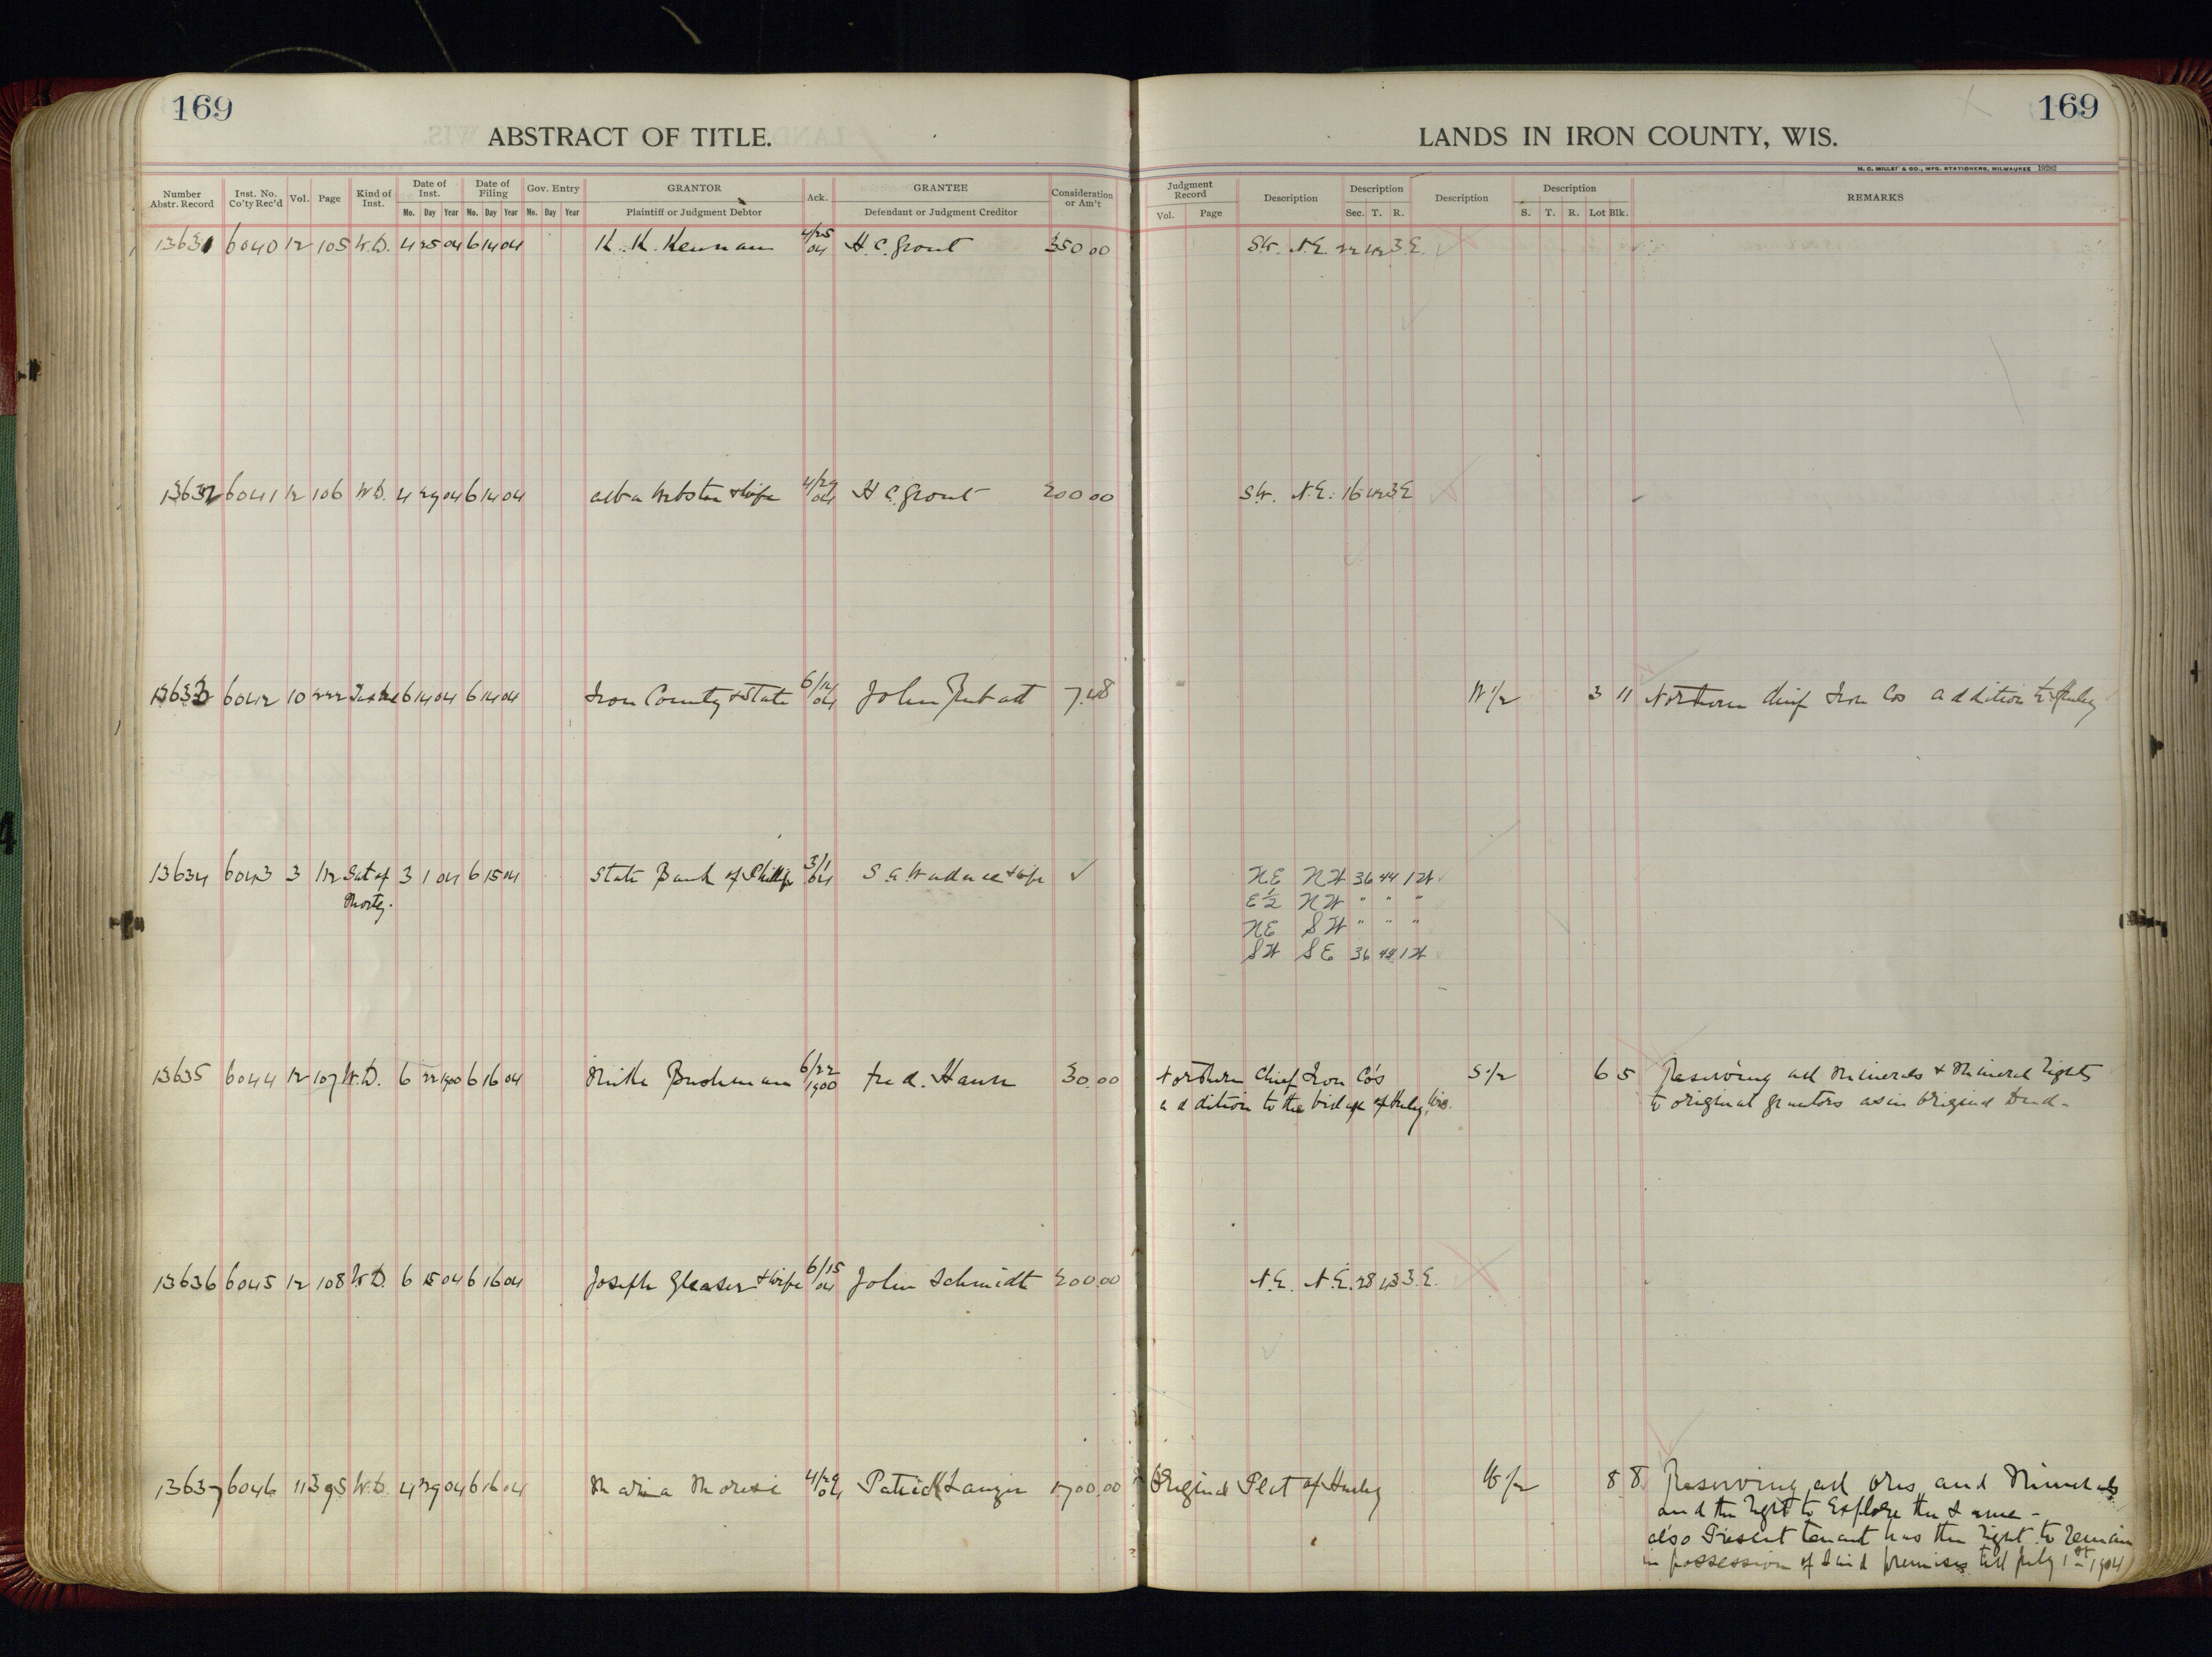 169
169
ABSTRACT OF TITLE.
LANDS IN IRON COUNTY, WIS.
M. C. MILLER & CO., MFG. STATIONERS, MILWAUKEE 19282
Number Abstr. Record Inst. No. Co'ty Rec'd Vol. Page Kind of Inst. Date of Inst. Date of Filing Gov. Entry GRANTOR Ack. GRANTEE Consideration or Am't Judgment Record Description Description Description Description REMARKS
No. Day Year No. Day Year No. Day Year Plaintiff or Judgment Debtor Defendant or Judgment Creditor Vol. Page Sec. T. R. S. T. R. Lot Blk.
13631 6040 12 105 W.D. 4 25 04 6 14 04 K. K. Kennan 4/25 04 H. C. Grout 350 00 SW. N.E. 22 42 3 E.
13632 6041 12 106 W.D. 4 29 04 6 14 04 Alba Webster & wife 4/29 04 H C. Grout 200 00 SW. N.E. 16 42 3 E
13633 6042 10 222 6 14 04 6 14 04 Iron County & State 6/14 04 John 7.48 W 1/2 3 11 Northern Chief Iron Cos addition to Hurley
13634 6043 3 112 Sat of 3 1 04 6 15 04 State Bank of Phillips 3/1 04 S. A. & wife ✓ NE NW 36 44 1 W
Mortg. E 1/2 NW " " "
NE SW " " "
SW SE 36 44 1 W
13635 6044 12 107 W.D. 6 22 1900 6 16 04 Mike Bushman 6/22 1900 Fred. 30.00 Northern Chief Iron Co's S 1/2 6 5 Reserving all minerals & mineral rights
addition to the village of Hurley, Wis. to original grantors as in original Deed.
13636 6045 12 108 W.D. 6 15 04 6 16 04 Joseph Gleaser & wife 6/15 04 John Schmidt 200.00 N.E. N.E. 28 43 3 E.
13637 6046 11 395 W.D. 4 29 04 6 16 04 Maria Moresi 4/29 04 Patrick 1700.00 Original Plat of Hurley W 1/2 8 8 Reserving all ores and Minerals
and the right to Explore the same -
also Present tenant has the right to remain
in possession of said premises till July 1st 1904